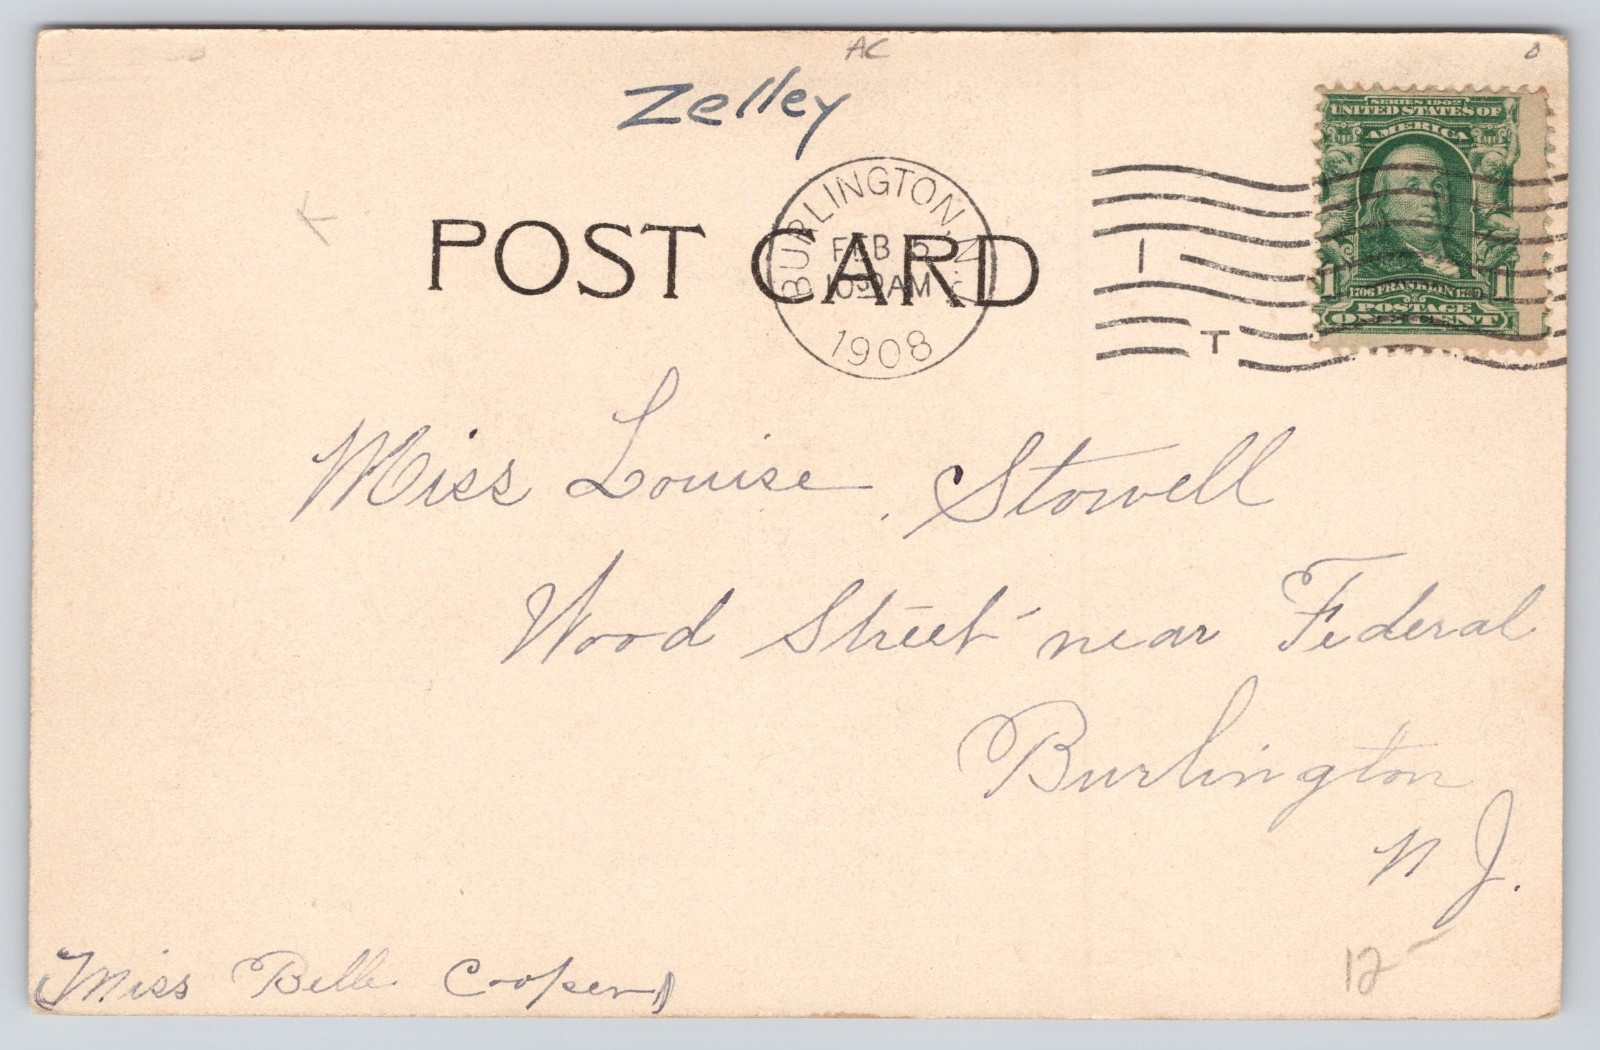 AC
Zelley
POST CARD
BURLINGTON, N.J.
FEB 5
1030AM
1908
1
T
SERIES 1902
UNITED STATES OF
AMERICA
1 1
1706 FRANKLIN 1790
POSTAGE
ONE CENT
Miss Louise Stowell
Wood Street near Federal
Burlington
N J.
(Miss Belle Cooper)
12